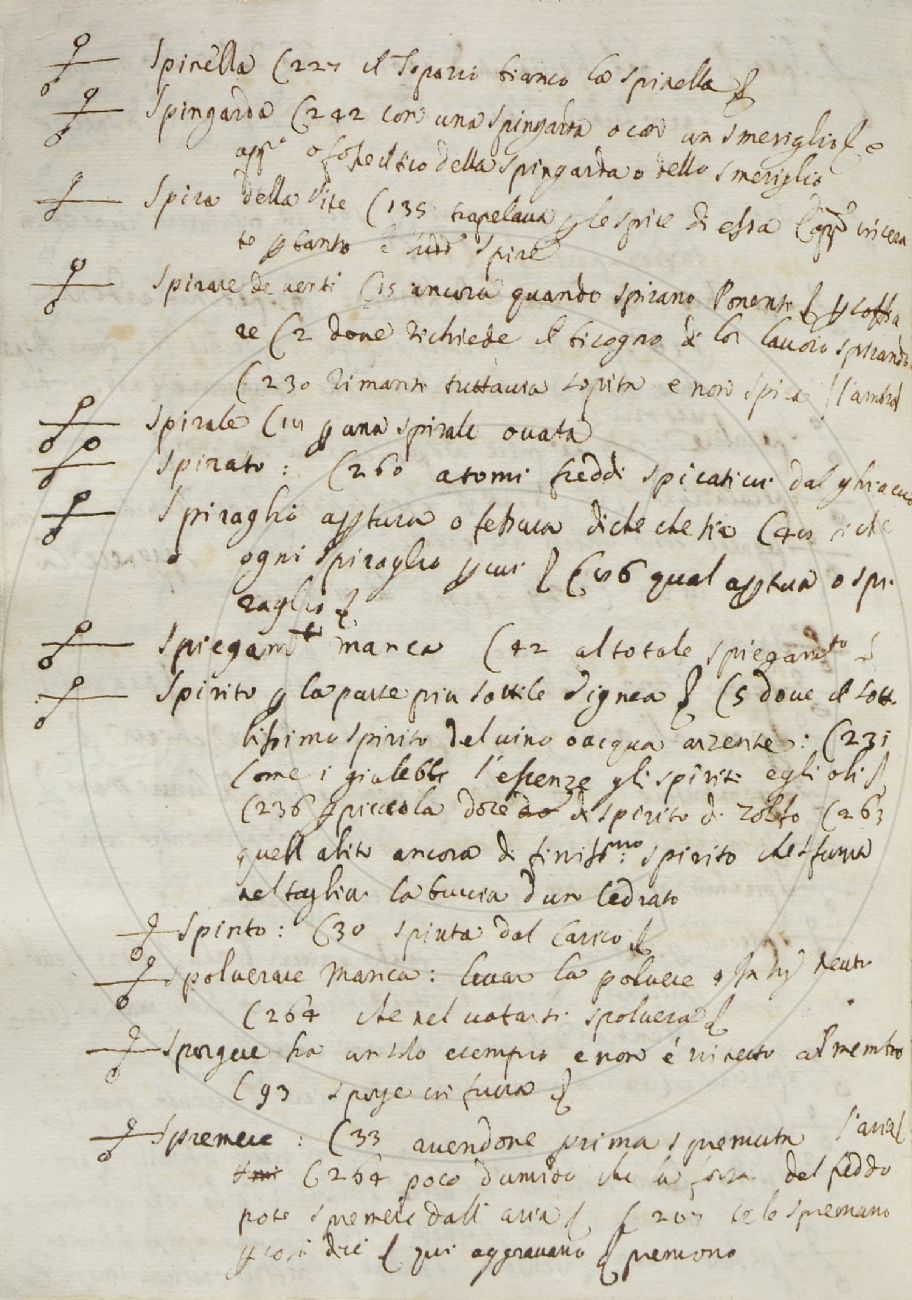 Spinella (227 il Topazio bianco la spinella
Spingarda (242 con una spingarda o con un smeriglio e
app.o o fosse il tiro della spingarda o dello smeriglio
Spira della Vite (135 trapelava p le spire di essa app.o
to p tanto è spire
Spirare de venti (15 ancora quando spirano Ponente
re (2 dove richiede il bisogno di lor lavoro spirando
(230 rimante tuttavia sopita e non spira l'ambra
Spirale (111 p una spirale ovata
Spirato : (260 atomi freddi spirativi dal ghiaccio
Spiraglio apptura o fessura di che che sia (40 che
o ogni spiraglio p cui (186 qual apptura o spi
raglio
Spiegam.to manca (42 al totale spiegam.to
Spirito p la parte piu sottile e ignea (5 dove il sott
lissimo spirito del vino o acqua arzente : (231
Come i giulebbi l'essenze gli spiriti e gli olii
(236 piccola dose di spirito di Zolfo (263
quell alito ancora di finiss.mo spirito che sfuma
nel tagliar la buccia d'un Cedrato
Spinto : (30 spinta dal Carico
Spolverare Manca : levar la polvere neutr
(264 che nel votarsi spolvera
Sporgere ha un solo esempio e non è al membro
(93 sporge in fuora
Spremere : (33 avendone prima spremuta l'aria
(264 poco d'umido che la forza del freddo
pote spremere dall aria (207 se le spremano
p cosi dire qui aggravano premono